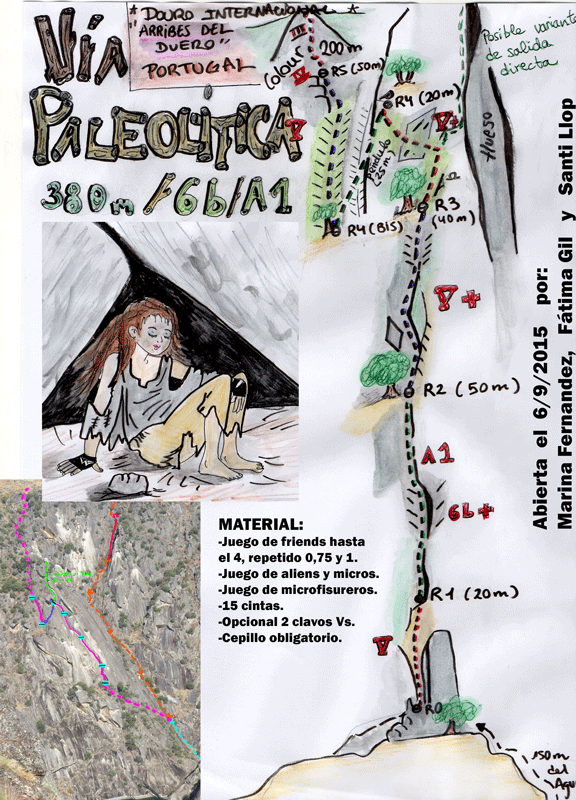 * DOURO INTERNACIONAL *
"ARRIBES DEL
DUERO"
PORTUGAL
Vía
PALEOLITICA
380m / 6b / A1
III
200 m
Colour
IV
R5 (50m)
V
R4 (20m)
V+
Posible variante
de salida
directa
Hueso
25m
R3
(40m)
R4 (BIS)
V+
R2 (50m)
A1
6b+
R1 (20m)
V
R0
150m
del
Agua
MATERIAL:
-Juego de friends hasta
el 4, repetido 0,75 y 1.
-Juego de aliens y micros.
-Juego de microfisureros.
-15 cintas.
-Opcional 2 clavos Vs.
-Cepillo obligatorio.
Abierta el 6/9/2015 por:
Marina Fernandez, Fátima Gil y Santi Llop